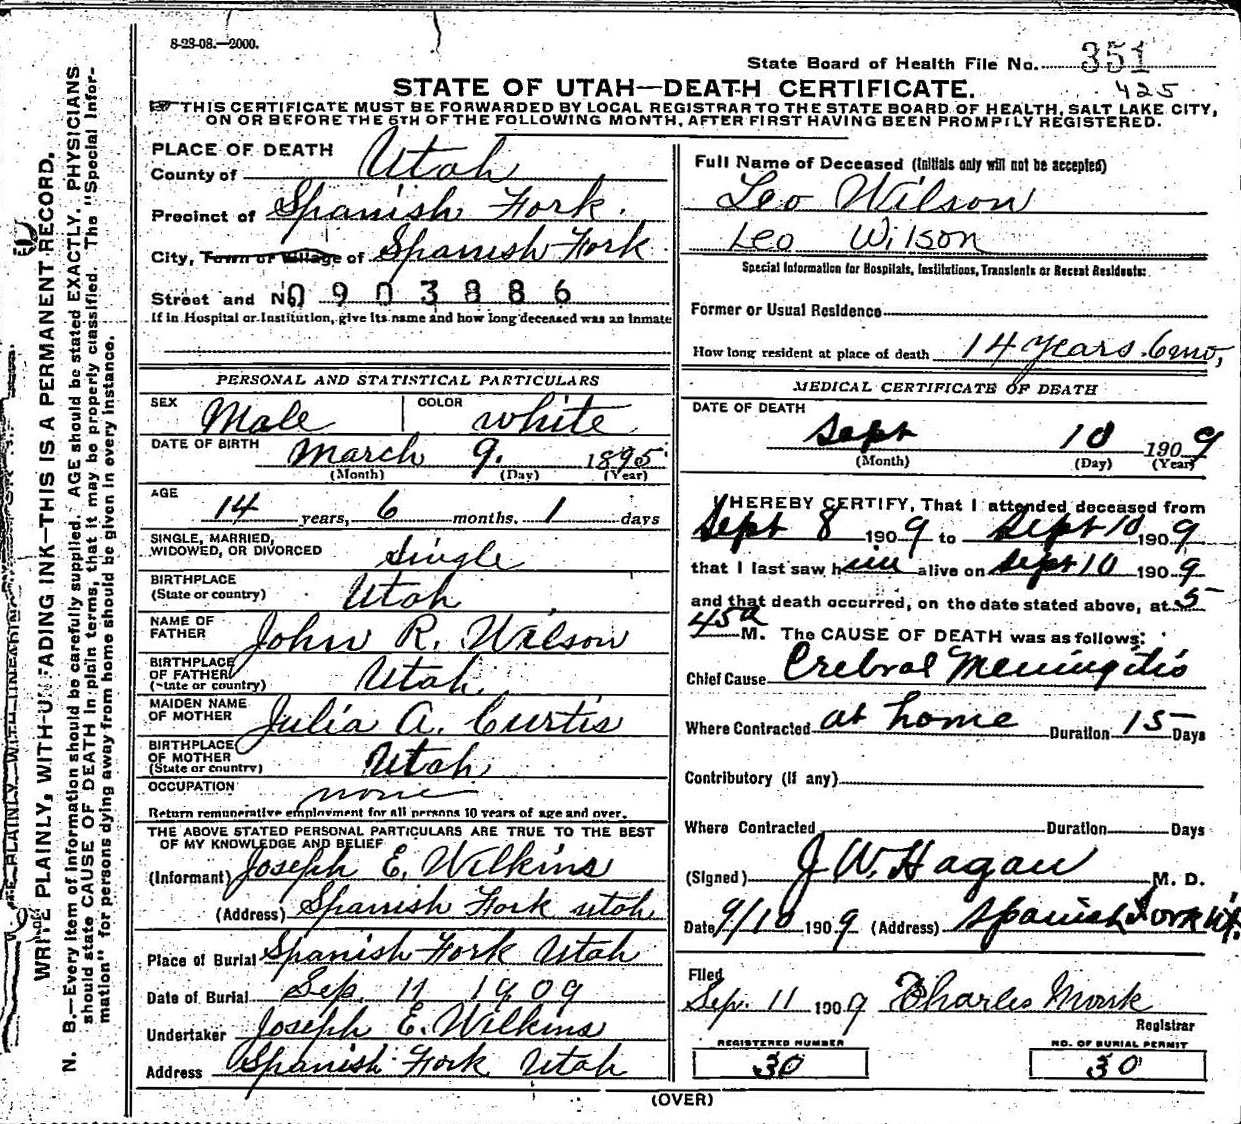 8-23-08.—2000.
State Board of Health File No. 351
425
STATE OF UTAH—DEATH CERTIFICATE.
THIS CERTIFICATE MUST BE FORWARDED BY LOCAL REGISTRAR TO THE STATE BOARD OF HEALTH, SALT LAKE CITY,
ON OR BEFORE THE 5TH OF THE FOLLOWING MONTH, AFTER FIRST HAVING BEEN PROMPILY REGISTERED.
WRITE PLAINLY, WITH UNFADING INK—THIS IS A PERMANENT RECORD.
N. B.—Every item of information should be carefully supplied. AGE should be stated EXACTLY. PHYSICIANS
should state CAUSE OF DEATH in plain terms, that it may be properly classified. The "Special Infor-
mation" for persons dying away from home should be given in every instance.
PLACE OF DEATH
County of Utah
Precinct of Spanish Fork.
City, Town or Village of Spanish Fork
Street and No. 0903886
If in Hospital or Institution, give its name and how long deceased was an inmate
PERSONAL AND STATISTICAL PARTICULARS
SEX Male COLOR white
DATE OF BIRTH March 9. 1895
(Month) (Day) (Year)
AGE
14 years, 6 months. 1 days
SINGLE, MARRIED,
WIDOWED, OR DIVORCED Single
BIRTHPLACE
(State or country) Utah
NAME OF
FATHER John R. Wilson
BIRTHPLACE
OF FATHER
(State or country) Utah
MAIDEN NAME
OF MOTHER Julia A. Curtis
BIRTHPLACE
OF MOTHER
(State or country) Utah
OCCUPATION none
Return remunerative employment for all persons 10 years of age and over.
THE ABOVE STATED PERSONAL PARTICULARS ARE TRUE TO THE BEST
OF MY KNOWLEDGE AND BELIEF
(Informant) Joseph E. Wilkins
(Address) Spanish Fork utah
Place of Burial Spanish Fork Utah
Date of Burial Sep. 11 1909
Undertaker Joseph E. Wilkins
Address Spanish Fork Utah
Full Name of Deceased (Initials only will not be accepted)
Leo Wilson
Leo Wilson
Special Information for Hospitals, Institutions, Transients or Recent Residents:
Former or Usual Residence
How long resident at place of death 14 years. 6mo,
MEDICAL CERTIFICATE OF DEATH
DATE OF DEATH
Sept 10 1909
(Month) (Day) (Year)
I HEREBY CERTIFY, That I attended deceased from
Sept 8 1909 to Sept 10 1909
that I last saw him alive on Sept 10 1909
and that death occurred, on the date stated above, at 5
45a M. The CAUSE OF DEATH was as follows:
Chief Cause Crebral Meningitis
Where Contracted at home Duration 15 Days
Contributory (if any)
Where Contracted Duration Days
(Signed) J W. Hagan M. D.
Date 9/10 1909 (Address) Spanish Fork Ut.
Filed
Sep. 11 1909 Charles Monk
Registrar
REGISTERED NUMBER
30
NO. OF BURIAL PERMIT
30
(OVER)